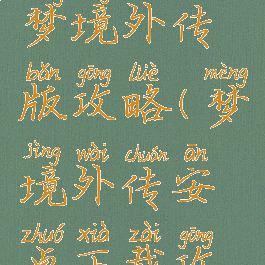 梦境外传
bǎn gōng lüè mèng
版攻略(梦
jìng wài chuán ān
境外传安
zhuó xià zài gōng
卓下载攻